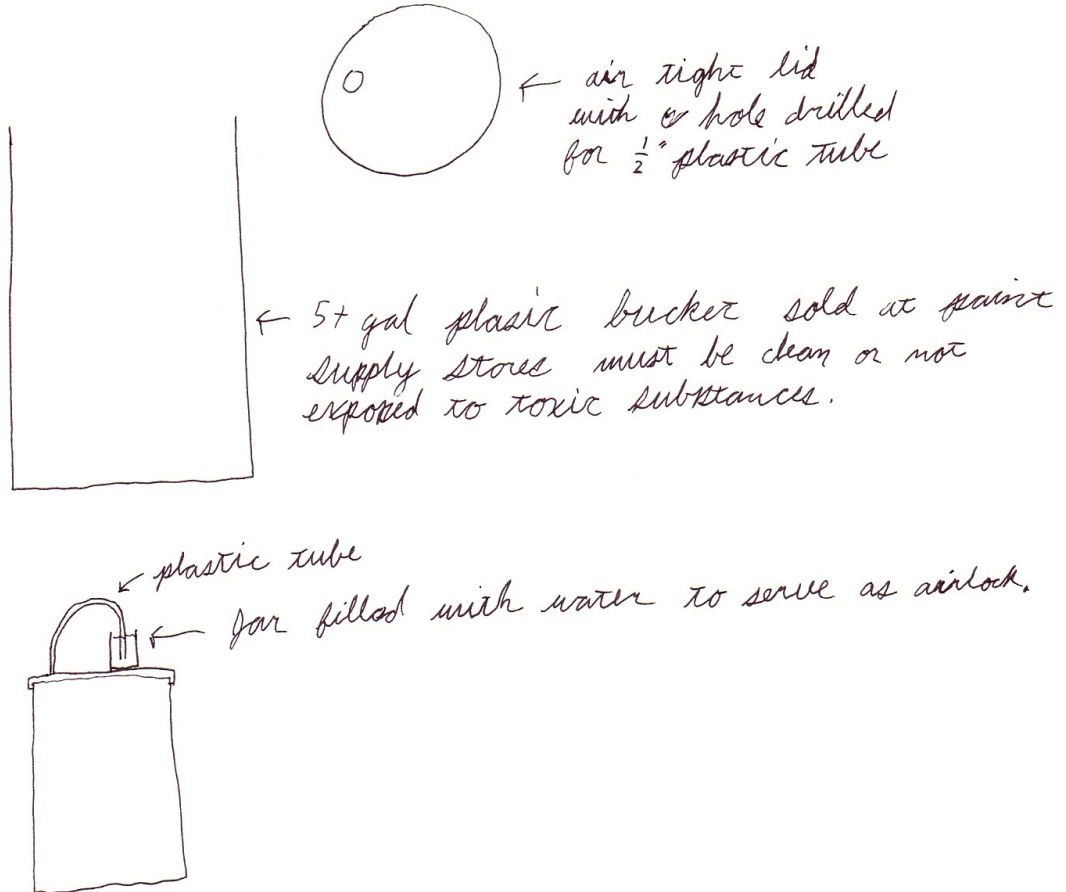 air tight lid
with a hole drilled
for 1/2" plastic tube
5+ gal plasic bucket sold at paint
supply stores must be clean or not
exposed to toxic substances.
plastic tube
Jar filled with water to serve as airlock.